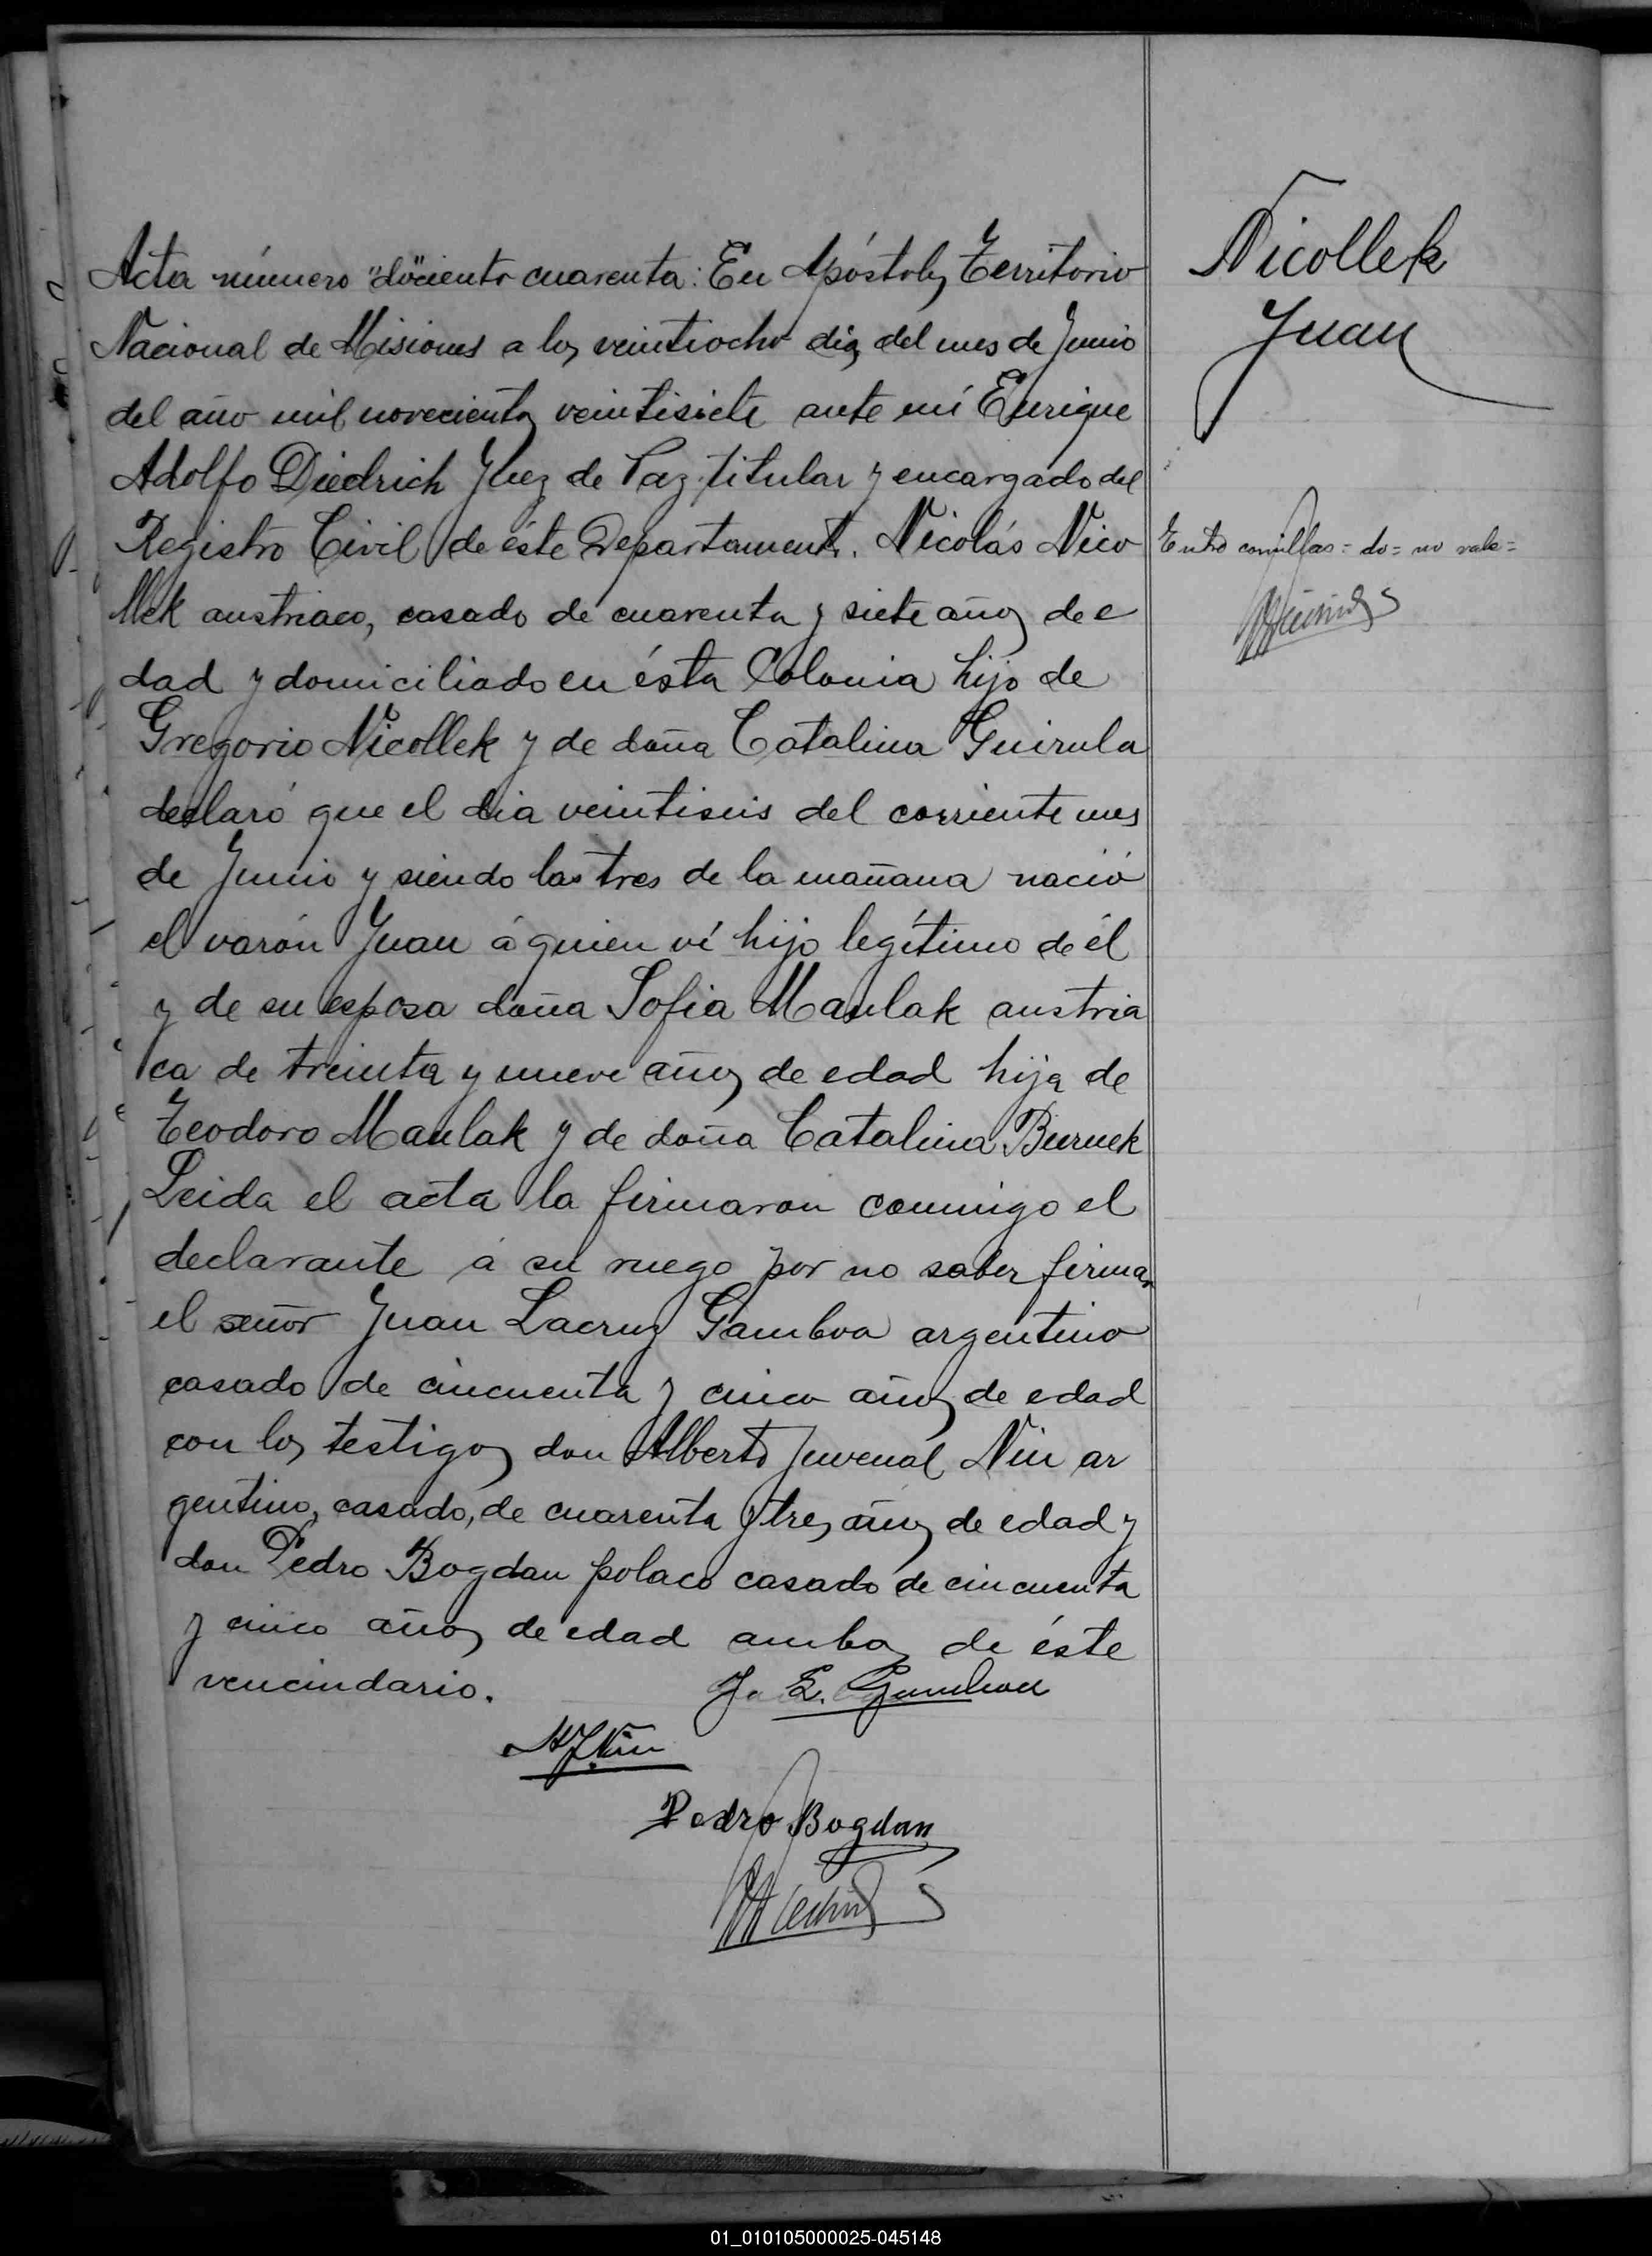 Acta número "do"ciento cuarenta: En Apóstoles Territorio
Nacional de Misiones a los veintiocho dias del mes de Junio
del año mil novecientos veintisiete ante mí Enrique
Adolfo Diedrich Juez de Paz titular y encargado del
Registro Civil de éste Departamento. Nicolás Nico
llek austriaco, casado de cuarenta y siete años de e
dad y domiciliado en ésta Colonia hijo de
Gregorio Nicollek y de doña Catalina Guirula
declaró que el dia veintiseis del corriente mes
de Junio y siendo las tres de la mañana nació
el varón Juan á quien ví hijo legítimo de él
y de su esposa doña Sofia Maulak austria
ca de treinta y nueve años de edad hija de
Teodoro Maulak y de doña Catalina Buruek
Leida el acta la firmaron conmigo el
declarante á su ruego por no saber firmar
el señor Juan Lacruz Gamboa argentino
casado de cincuenta y cinco años de edad
con los testigos don Alberto Juvenal Nin ar
gentino, casado, de cuarenta y tres años de edad y
don Pedro Bogdan polaco casado de cincuenta
y cinco años de edad ambos de éste
vencindario.
J. L. Gamboa
A J. Nin
Pedro Bogdan
Nicollek
Juan
Entre comillas = do = no vale =
01_010105000025-045148